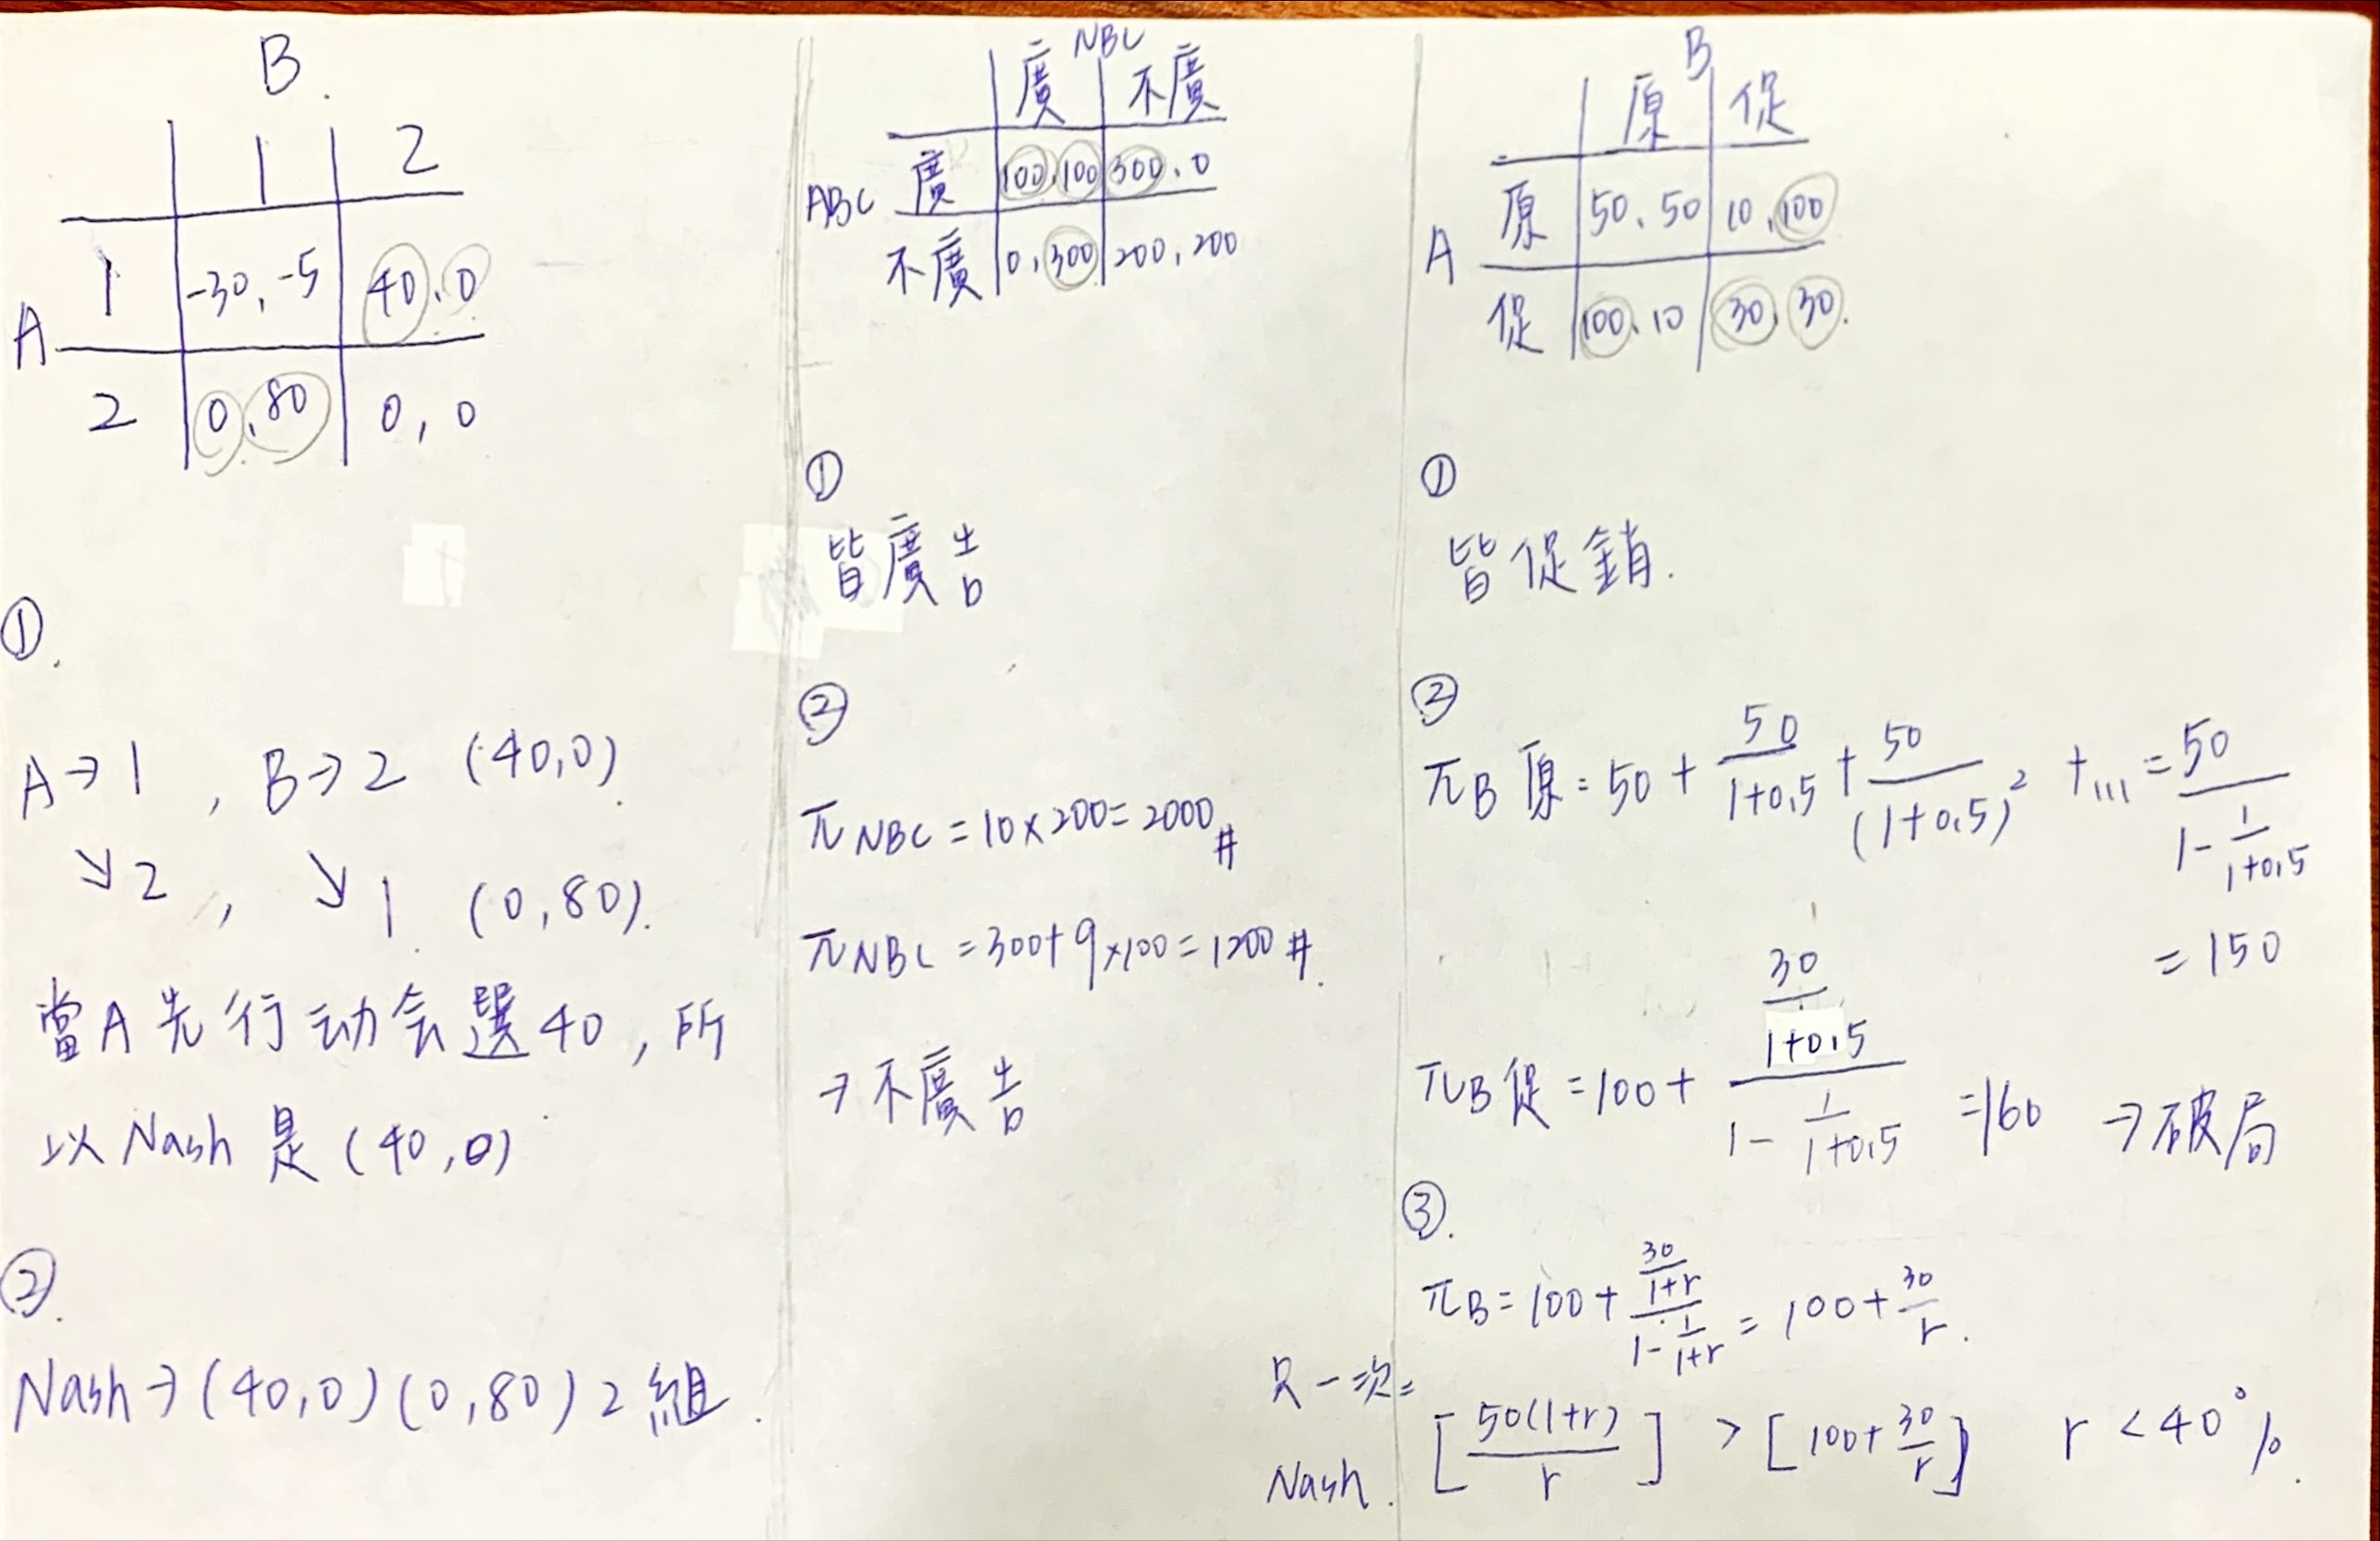 B.
1 2
A
1 -30, -5 40, 0
2 0, 80 0, 0
①.
A→1, B→2 (40,0).
↘2, ↘1. (0,80).
當A先行动会選40,所
以Nash是(40,0)
②.
Nash→(40,0)(0,80)2組.
NBC
廣 不廣
ABC
廣 100, 100 300, 0
不廣 0, 300 200, 200
①
皆廣告
②
πNBC=10×200=2000#
πNBC=300+9×100=1200#.
→不廣告
B
原 促
A
原 50, 50 10, 100
促 100, 10 30, 30.
①
皆促銷.
②
πB原=50+50/(1+0.5)+50/(1+0.5)²+...=50/(1-1/(1+0.5))
=150
πB促=100+(30/(1+0.5))/(1-1/(1+0.5))=160 →破局
③.
πB=100+(30/(1+r))/(1-1/(1+r))=100+30/r.
只一次=
Nash. [50(1+r)/r] > [100+30/r] r<40%.